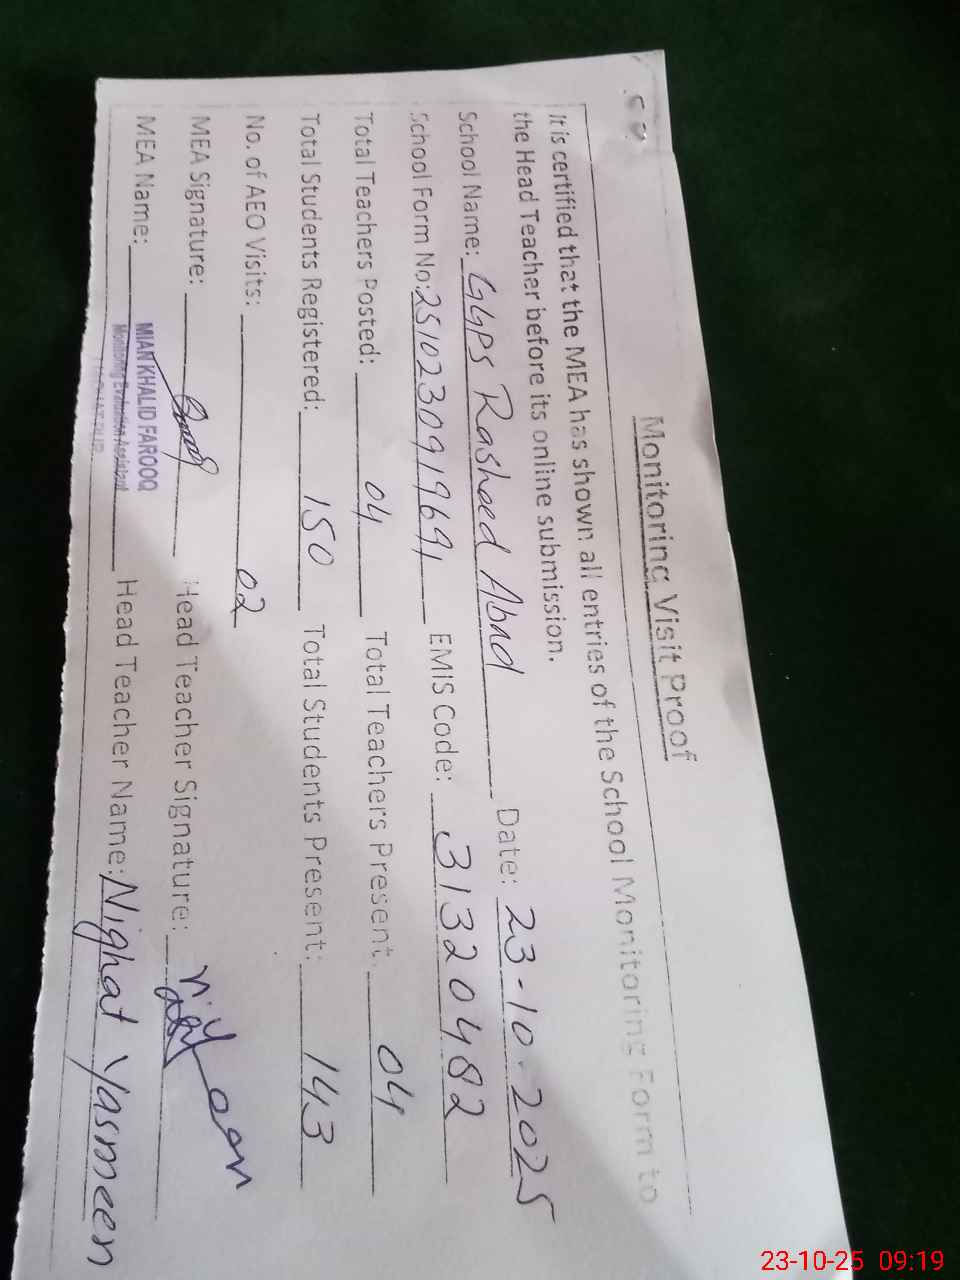 Monitoring Visit Proof
It is certified that the MEA has shown all entries of the School Monitoring Form to
the Head Teacher before its online submission.
School Name: GGPS Rasheed Abad Date: 23-10-2025
School Form No: 2510230919691 EMIS Code: 31320482
Total Teachers Posted: 04 Total Teachers Present: 04
Total Students Registered: 150 Total Students Present: 143
No. of AEO Visits: 02
MEA Signature: Head Teacher Signature:
MEA Name: MIAN KHALID FAROOQ Head Teacher Name: Nighat Yasmeen
Monitoring Evaluation Assistant
23-10-25 09:19